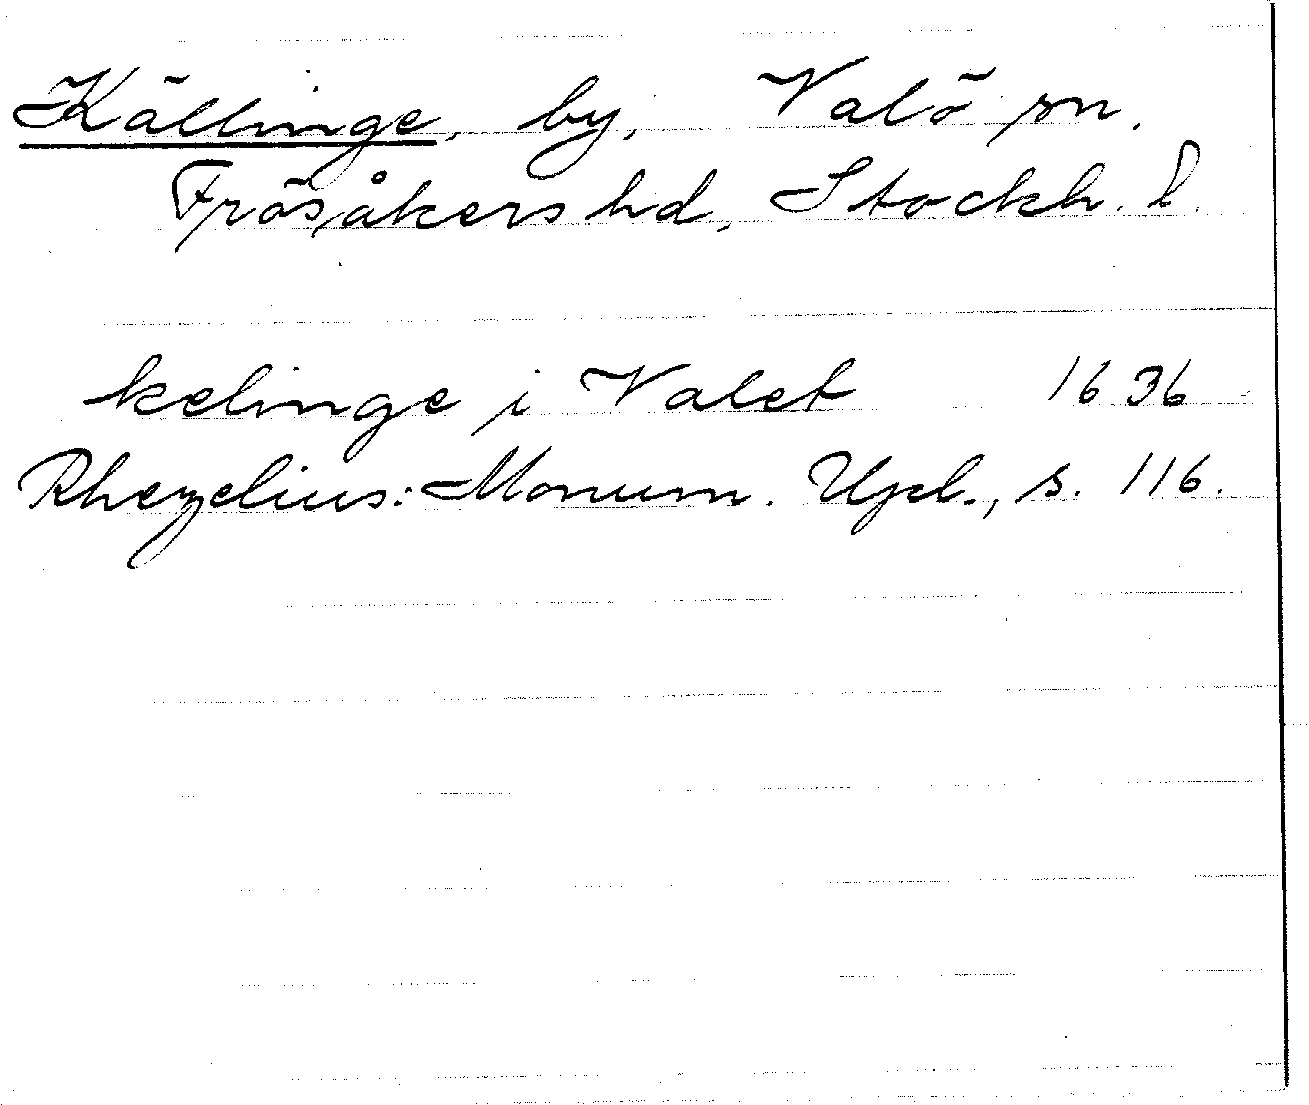 Källinge, by, Valö sn.
Frösåkers hd, Stockh. l.
kelinge i Valet 1636
Rhezelius: Monum. Upl., s. 116.